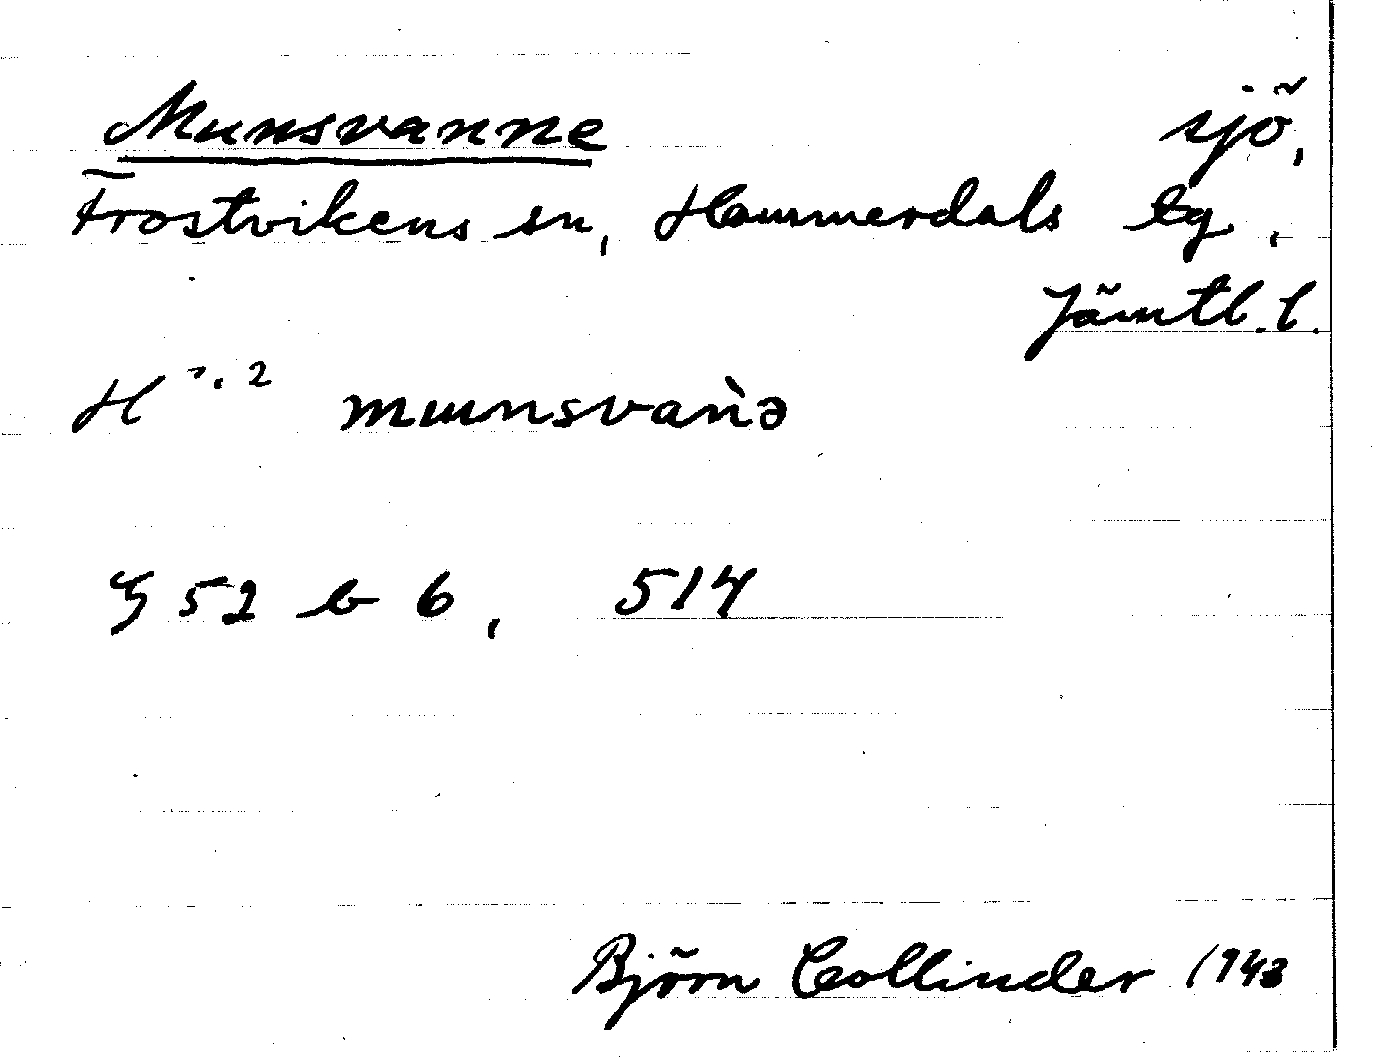 Munsvanne sjö,
Frostvikens sn, Hammerdals tg,
Jämtl. l.
H 2 muunsvaǹə
§ 52 b 6, 514
Björn Collinder 1943